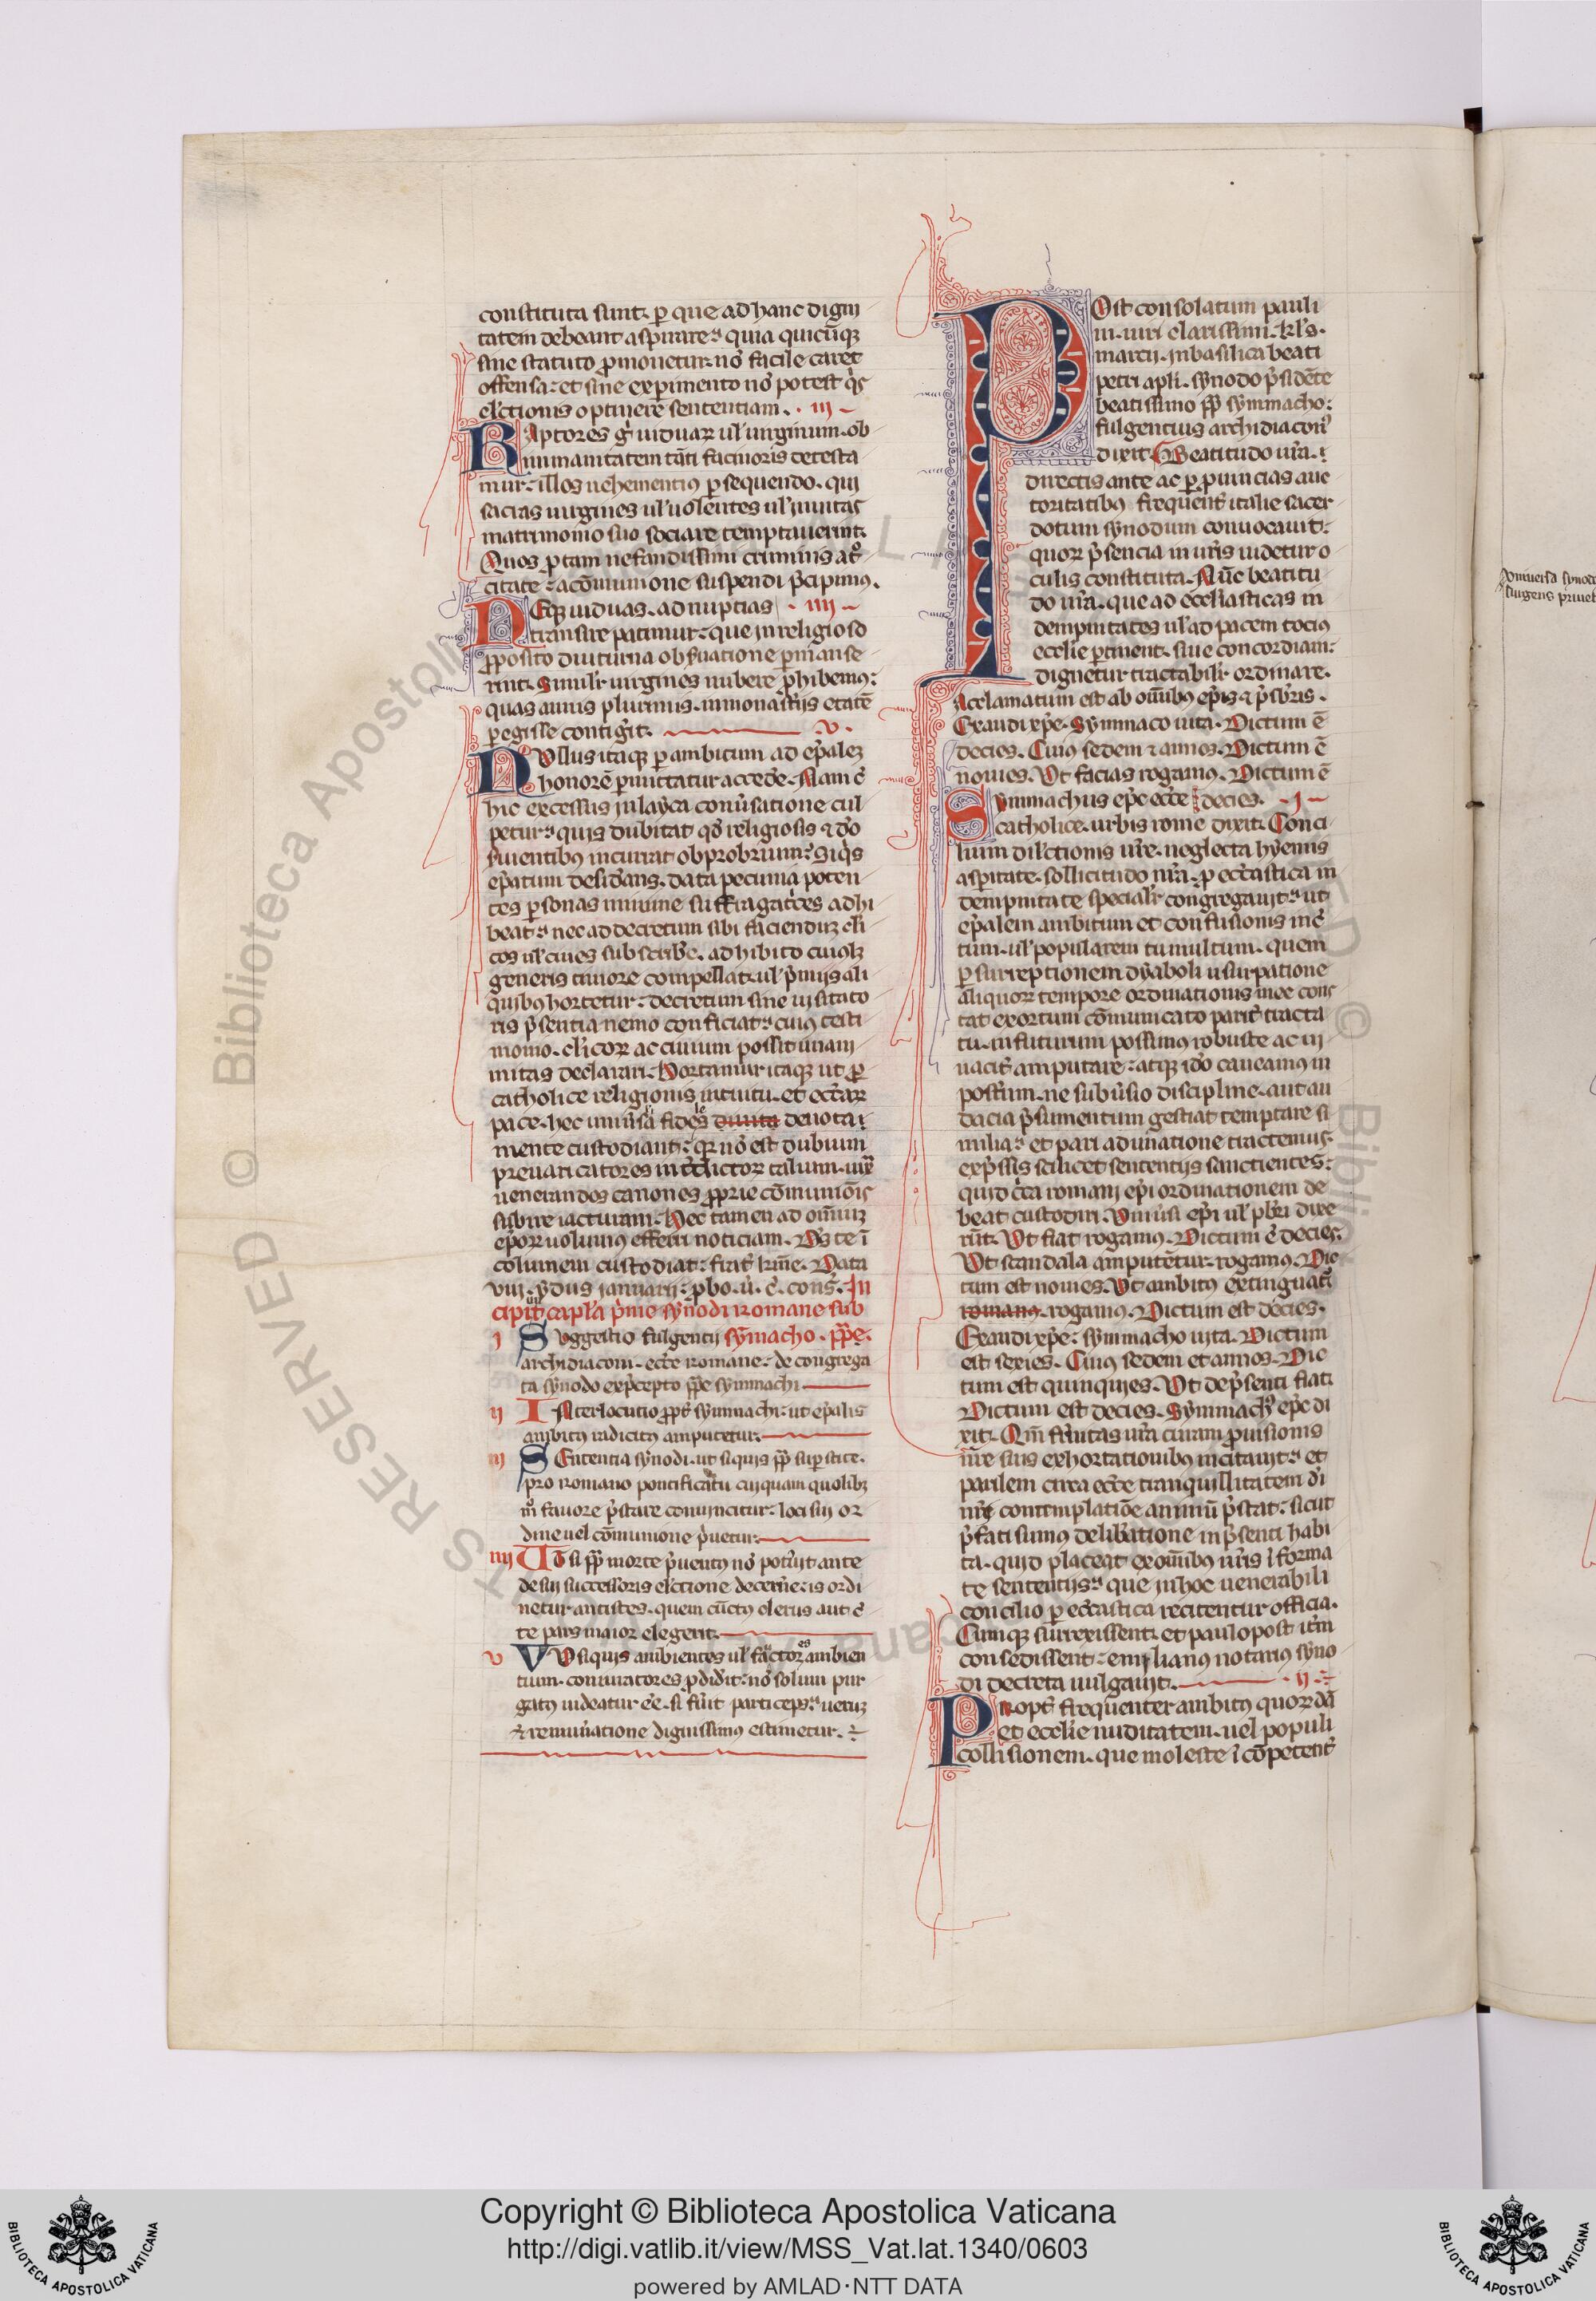 constituta sunt. ꝑ que ad hanc digni
tatem debeant aspirare. quia quicūqꝫ
sine statuto ꝓmouetur. nō facile caret
offensa. et sine experimento nō potest q̉s
elc̄tionis optinere sententiam. · iii
Raptores g̉ uiduaꝝ ul' uirginum. ob
inmanitatem tāti facinoris detesta
mur. illos uehementiꝰ ꝑsequendo. qui
sacras uirgines ul' uolentes ul' inuitas
matrimonio suo sociare temptauerint.
Quos ꝓ tam nefandissimi criminis at̉o
citate. a cōmunione suspendi p̄cipimꝰ.
Neqꝫ uiduas. ad nuptias · iiii
transire patimur. que in religioso
ꝓposito diuturna obs̉uatione ꝑmanse
rint. Simil'r uirgines nubere ꝓhibemꝰ.
quas annis plurimis. in monast̉iis etatē
ꝑegisse contig̉it. v.
Nullus itaqꝫ ꝑ ambitum ad ep̄aleꝫ
honorē ꝑmittatur acced̉e. Nam c̄
hic excessus in layca conủsatione cul
petur. quis dubitat qd̄ religiosis ⁊ dō
s̉uientibꝰ incurrat obprobrium. Siq̉s
ep̄atum desid̉ans. data pecunia poten
tes ꝑsonas inuime suffragat̉ces adhi
beat. nec ad decretum sibi faciendiꝫ cl'i
cos ul' ciues subscrib̉e. adhibito cuiuslꝫ
generis timore compellat. ul' p̄mijs ali
quibꝰ hortetur. decretum sine uisitato
ris p̄sentia nemo conficiat. cuiꝰ testi
monio. cl'icoꝝ ac ciuium possit unani
mitas declarari. Hortamur itaqꝫ ut ꝓ
catholice religionis intuitu. et ecc̄aꝝ
pace. hec uniủsa fides diuita deuota
mente custodiant. q̉ꝛ nō est dubium
preuaricatores int̉dictoꝝ talium. iux̄
uenerandos canones ꝓprie cōmuniōis
subire iacturam. Hec tamen ad om̄iuꝫ
ep̄oꝝ uolumꝰ eff̉erri noticiam. Ds̄ te ī
columem custodiat. frat̉ kr̄me. Data
viii. ydus ianuarij. ꝓbo. ủ. c̄. cons̄. In
cipiūt capl'a p̄me synodi romane sub
i Suggestio fulgentij symacho. pp̄e.
archidiaconi. ecc̄e romane. de congrega
ta synodo ex p̄cepto pp̄e symmachi
ii Interlocutio ꝓpt̉ symmachi. ut ep̄alis
ambitꝰ radicitꝰ amputetur.
iii Sententia synodi. ut siquis pp̄ suꝑstite.
pro romano pontificatu cuiquam quolibꝫ
m̊ fauore p̄stare conuincitur. loci sui or
dine uel cōmunione p̉uetur.
iiii Ut si pp̄ morte p̄uentꝰ nō potủit ante
de sui successoris elc̄tione decern̉e. is ordi
netur antistes. quem cūctꝰ clerus aut c̄
te pars maior elegerit.
v Ut siquis ambientes ul' factores ambien
tium. coniuratores ꝓdid̉it. nō solum pur
gatꝰ uideatur ēe. si fủit particeps. ueruꝫ
⁊ remun̉atione dignissimꝰ estimetur.
Post consolatum pauli
iu. uiri clarissimi. kl's.
marcij. in basilica beati
petri apl'i. synodo p̄sidēte
beatissimo pp̄ symmacho.
fulgentius archidiacon̄
dixit. Beatitudo ur̄a.
directis ante ac ꝑ ꝓuincias auc
toritatibꝰ frequent̉ italie sacer
dotum synodum conuocauit.
quoꝝ p̄sencia in ur̄is uidetur o
culis constituta. Nūc beatitu
do ur̄a. que ad eccl'iasticas in
dempnitates ul' ad pacem tociꝰ
eccl'ie ꝑtinent. siue concordiam.
dignetur tractabilr̄ ordinare.
Acclamatum est ab om̄ibꝰ ep̄is ⁊ p̄sbr̄is.
Exaudi xp̄e. Symmaco uita. Dictum ē
decies. Cuiꝰ sedem ⁊ annos. Dictum ē
nouies. Ut facias rogamꝰ. Dictum ē
Symmachus ep̄c ecc̄e decies. · i
catholice. urbis rome dixit. Conci
lium dilc̄tionis ur̄e. neglecta hyemis
asꝑitate. sollicitudo nr̄a. ꝓ ecc̄astica in
dempnitate specialr̄ congregauit. ut
ep̄alem ambitum et confusionis inc̄
tum. ul' popularem tumultum. quem
ꝑ surreptionem dyaboli usurpatione
aliquoꝝ tempore ordinationis inde cons
tat exortum cōmunicato parit̉ tracta
tu. in futurum possimus robuste ac ui
uacit̉ amputare. atqꝫ idō caueamꝰ in
post̉um. ne subủsio discipline. aut au
dacia p̄sumentum gestiat temptare si
milia. et pari adunatione tractemus.
exp̄ssis scilicet sententijs sanctientes.
quid c̄ca romani ep̄i ordinationem de
beat custodiri. Uniủsi ep̄i ul' pb̄ri dixe
rūt. Ut fiat rogamꝰ. Dictum ē decies.
Ut scandala amputētur. rogamꝰ. Dic
tum est nouies. Ut ambitꝰ extinguat̉
romanꝰ. rogamꝰ. Dictum est decies.
Exaudi xp̄e. symmacho uita. Dictum
est sexies. Cuiꝰ sedem et annos. Dic
tum est quinquies. Ut de p̄senti fiat.
Dictum est decies. Symmachꝰ ep̄c di
xit. Qm̄ fr̄nitas ur̄a curam ꝓuisionis
nr̄e suis exhortationibus incitauit. et
parilem circa ecc̄e tranquillitatem d̉i
nr̄i contemplatiōe animū p̄stat. sicut
p̄fati sumus delib̉atione in p̄senti habi
ta. quid placeat ex om̄ibꝰ nr̄is ī forma
te sententijs. que in hoc uenerabili
concilio ꝑ ecc̄astica recitentur officia.
Cumqꝫ surrexissent. et paulo post it̉m
consedissent. emilianus notarius syno
di decreta uulgauit. · ii.
Propt̉ frequenter ambitꝰ quoꝝdā
et eccl'ie nuditatem. uel populi
collisionem. que moleste ī cōpetent̉
Copyright © Biblioteca Apostolica Vaticana
http://digi.vatlib.it/view/MSS_Vat.lat.1340/0603
powered by AMLAD·NTT DATA
BIBLIOTECA APOSTOLICA VATICANA
BIBLIOTECA APOSTOLICA VATICANA